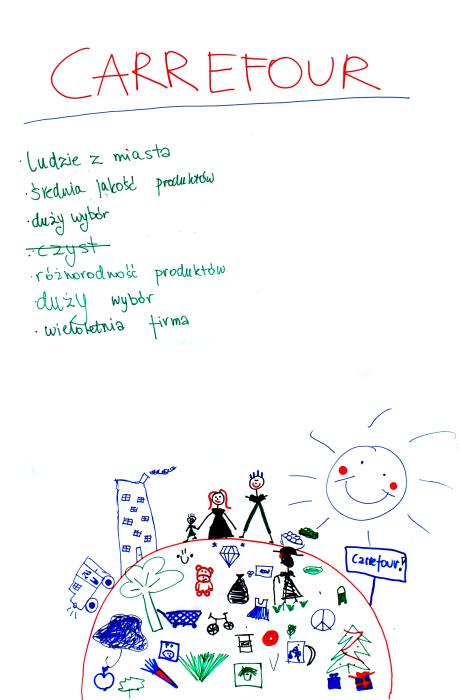 CARREFOUR
· ludzie z miasta
· średnia jakość produktów
· duży wybór
· czyst
· różnorodność produktów
· duży wybór
· wieloletnia firma
Carrefour!